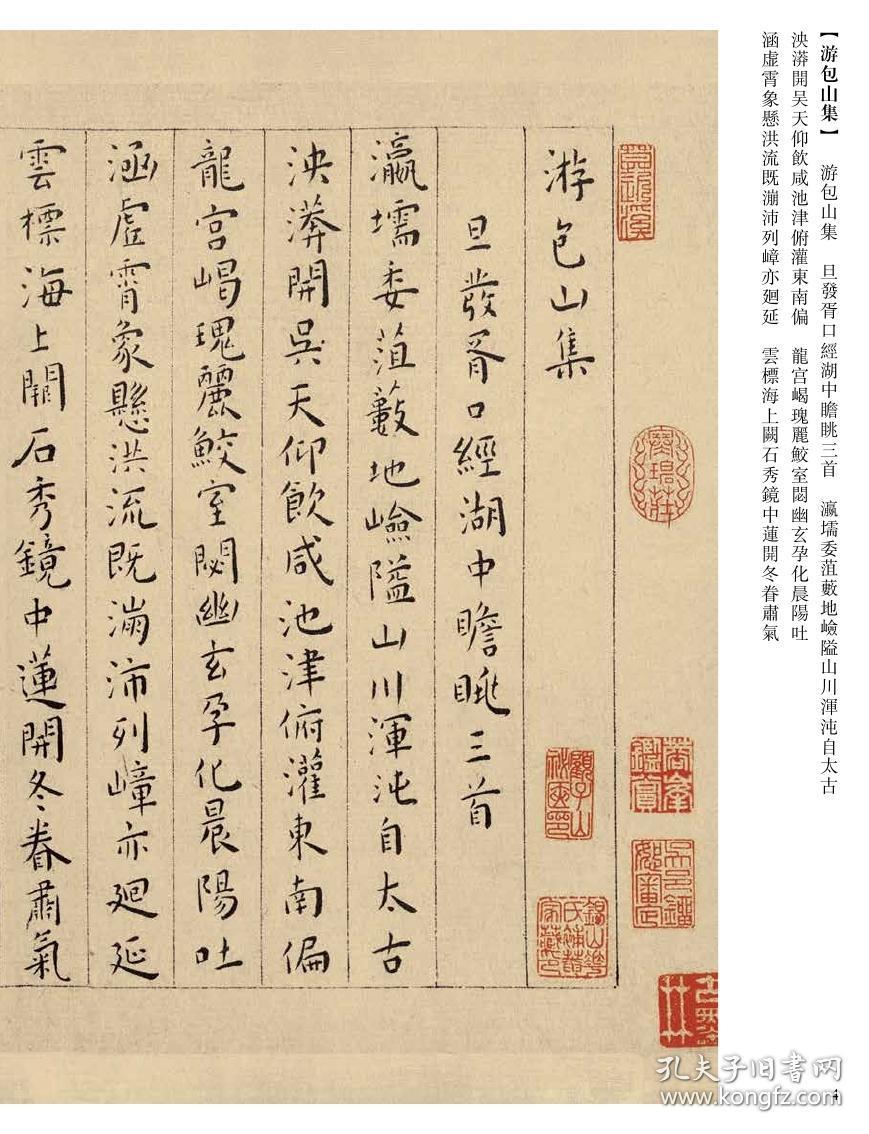 【游包山集】　游包山集　旦發胥口經湖中瞻眺三首　瀛壖委菹藪地嶮隘山川渾沌自太古
泱漭開吴天仰飲咸池津俯灌東南偏　龍宫嵑瑰麗鮫室閟幽玄孕化晨陽吐
涵虚霄象懸洪流既漰沛列嶂亦廻延　雲標海上闕石秀鏡中蓮開冬眷肅氣
游包山集
旦發胥口經湖中瞻眺三首
瀛壖委菹藪地嶮隘山川渾沌自太古
泱漭開吳天仰飲咸池津俯灌東南偏
龍宫嵑瑰麗鮫室閟幽玄孕化晨陽吐
涵虛霄象懸洪流既漰沛列嶂亦廻延
雲標海上闕石秀鏡中蓮開冬眷肅氣
顧子山秘篋印
錫山華氏補菴家藏印
孔夫子旧书网
www.kongfz.com
4